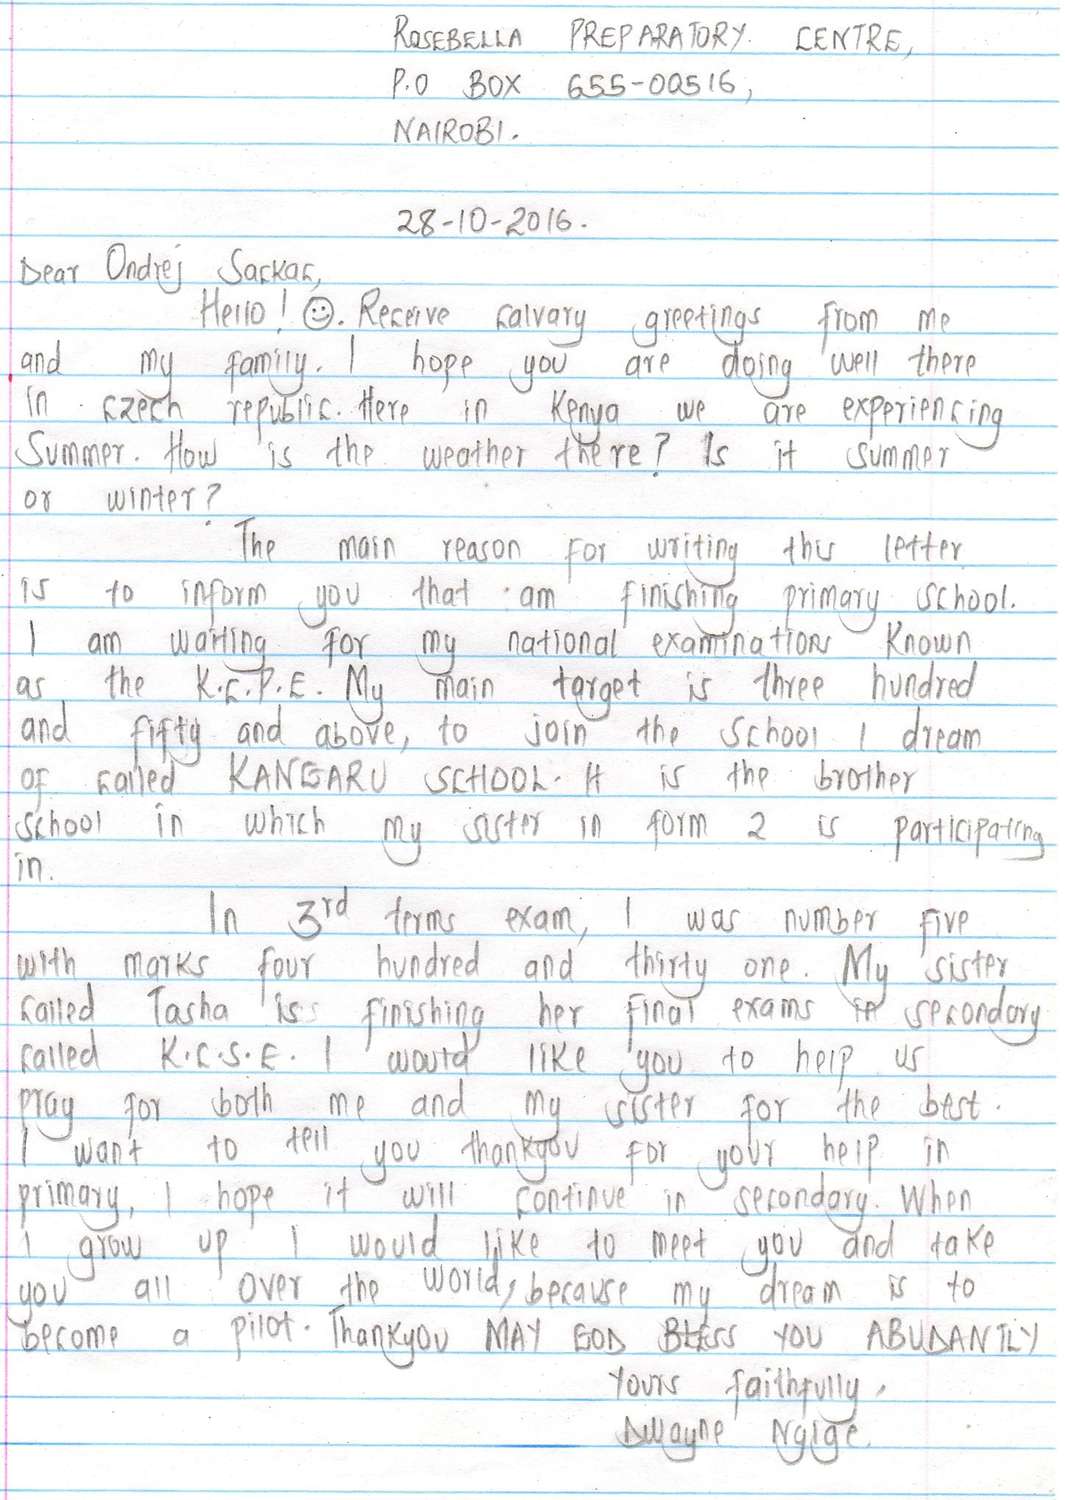 ROSEBELLA PREPARATORY CENTRE,
P.O BOX 655-00516,
NAIROBI.
28-10-2016.
Dear Ondrej Sarkar,
Hello! ☺. Receive calvary greetings from me
and my family. I hope you are doing well there
in czech republic. Here in Kenya we are experiencing
Summer. How is the weather there? Is it summer
or winter?
The main reason for writing this letter
is to inform you that am finishing primary school.
I am waiting for my national examinations known
as the K.C.P.E. My main target is three hundred
and fifty and above, to join the school I dream
of called KANGARU SCHOOL. It is the brother
school in which my sister in form 2 is participating
in.
In 3rd terms exam, I was number five
with marks four hundred and thirty one. My sister
called Tasha is finishing her final exams in secondary
called K.C.S.E. I would like you to help us
pray for both me and my sister for the best.
I want to tell you thankyou for your help in
primary, I hope it will continue in secondary. When
I grow up I would like to meet you and take
you all over the world, because my dream is to
become a pilot. Thankyou MAY GOD BLESS YOU ABUDANTLY
Yours faithfully,
Dwayne Ngige.